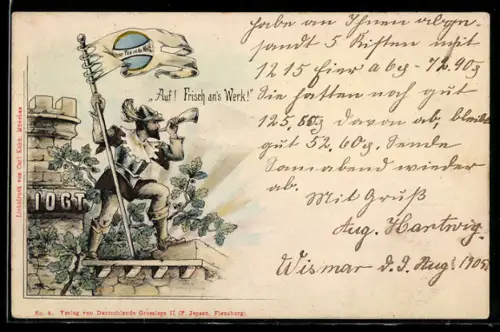 Unser Feld ist die Welt
„Auf! Frisch an's Werk!"
IOGT
Lichtdruck von Carl Kuhn, München
No. 4. Verlag von Deutschlands Grossloge II (P. Jepsen, Flensburg).
habe an Ihnen abge-
sandt 5 Kisten mit
1215 Eier abg - 72.90 ₰
Sie hatten noch gut
125,50 ₰ davon ab, bleibt
gut 52,60 ₰. Sende
Sonnabend wieder
ab.
Mit Gruß
Aug. Hartwig
Wismar d. 9. Aug. 1905.